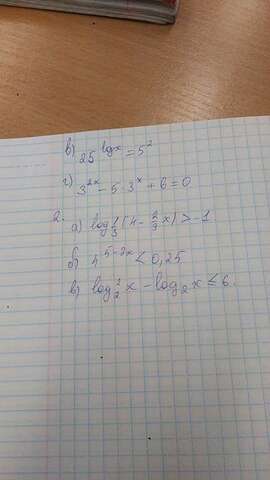 в) 25^{log x} = 5^2
г) 3^{2x} - 5·3^x + 6 = 0
2. а) log_{1/3} (4 - 2/3 x) > -1
б) 4^{5-2x} < 0,25
в) log_2^2 x - log_2 x ≤ 6.